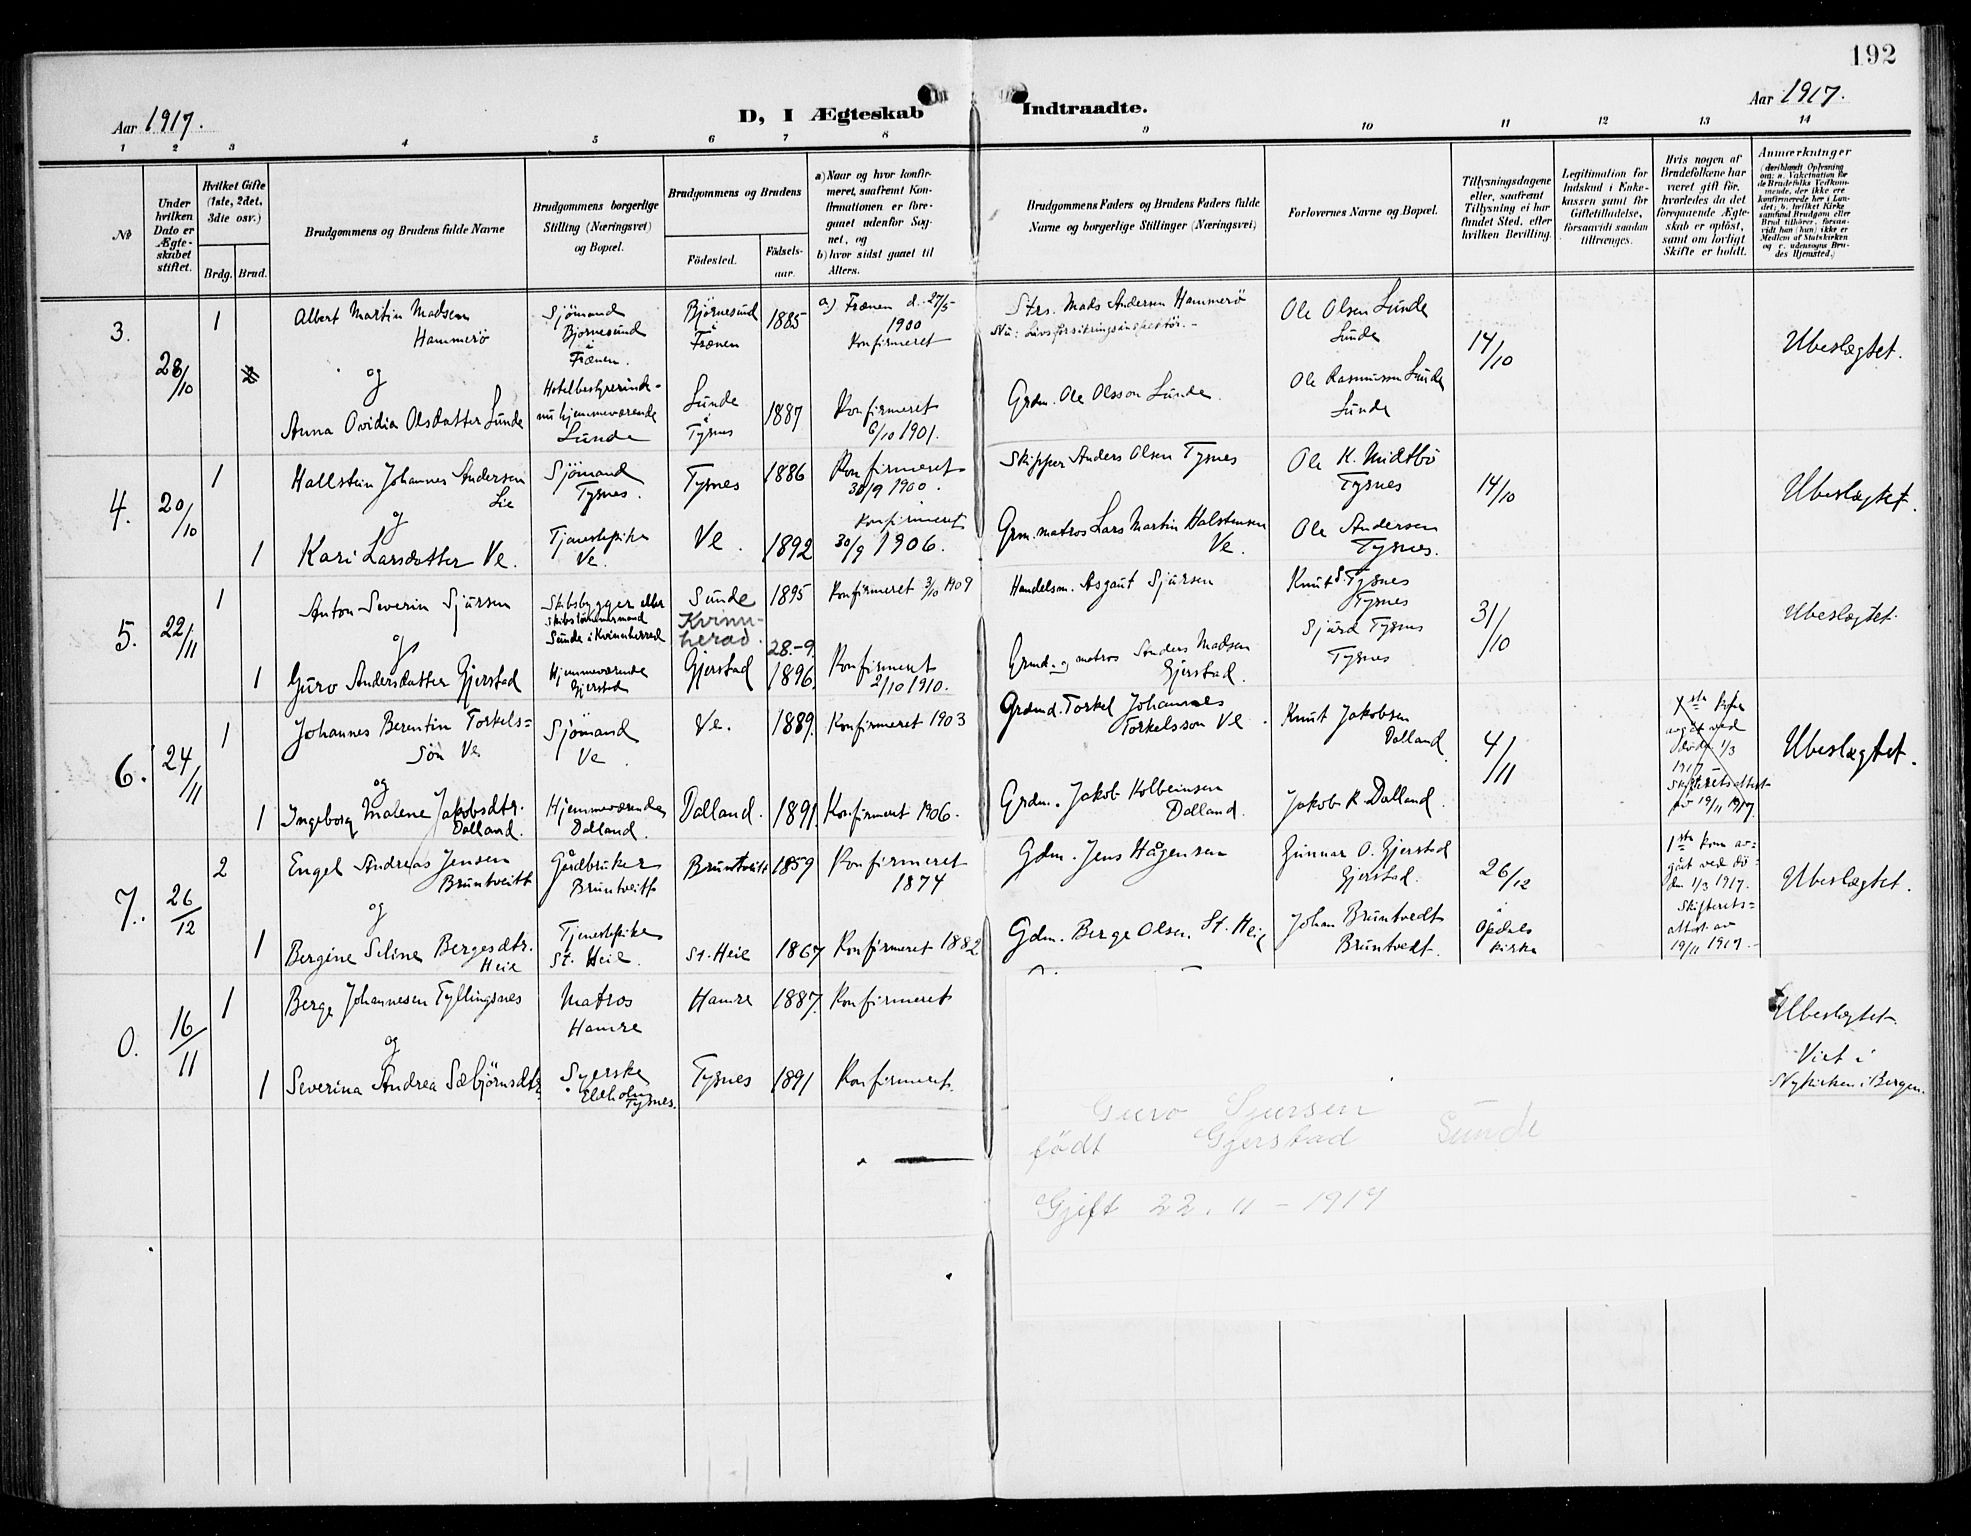 192
Aar 1917.
D, I Ægteskab Indtraadte.
Aar 1917.
1 2 3 4 5 6 7 8 9 10 11 12 13 14
№
Under hvilken Dato er Ægteskabet stiftet.
Hvilket Gifte (1ste, 2det, 3die osv.)
Brdg. Brud.
Brudgommens og Brudens fulde Navne
Brudgommens borgerlige Stilling (Næringsvei) og Bopæl.
Brudgommens og Brudens
Fødested.
Fødselsaar.
a) Naar og hvor konfirmeret, saafremt Konfirmationen er foregaaet udenfor Sognet, og
b) hvor sidst gaaet til Alters.
Brudgommens Faders og Brudens Faders fulde Navne og borgerlige Stillinger (Næringsvei)
Forlovernes Navne og Bopæl.
Tillysningsdagene eller, saafremt Tillysning ei har fundet Sted, efter hvilken Bevilling.
Legitimation for Indskud i Enkekassen samt for Giftetilladelse, forsaavidt saadan tiltrænges.
Hvis nogen af Brudefolkene har været gift før, hvorledes da det foregaaende Ægteskab er opløst, samt om lovligt Skifte er holdt.
Anmærkninger
3.
28/10
1
Albert Martin Madsen
Hammerö
og
Anna Ovidia Olsdatter Lunde
Sjömand
Bjornesund
i
Frænen.
Hotelbestyrerinde-
nu hjemmeværende
Lunde
Björnesund
i
Frænen
Lunde
i
Tysnes
1885
1887
a) Frænen d. 27/5
1900
Konfirmeret
Konfirmeret
6/10 1901.
Strs. Mads Andersen Hammerö
Nu: Livsforsikringsinspektör.-
Grdm. Ole Olsson Lunde.
Ole Olsen Lunde
Lunde
Ole Rasmussen Lunde
Lunde
14/10
Ubeslægtet.
4.
20/10
1
1
Hallstein Johannes Andersen
Lie
og
Kari Larsdatter Ve.
Sjömand
Tysnes.
Tjenestepike
Ve.
Tysnes
Ve.
1886
1892
Konfirmeret
30/9 1900.
Konfirmeret
30/9 1906.
Skipper Anders Olsen Tysnes
Grm. matros Lars Martin Halstensen
Ve.
Ole K. Midtbö
Tysnes
Ole Andersen
Tysnes.
14/10
Ubeslægtet.
5.
22/11
1
1
Anton Severin Sjursen
og
Guro Andersdatter Gjerstad
Skibsbygger eller
skibstömmermand
Sunde i Kvinnherred
Hjemmeværende
Gjerstad
Sunde
Kvinnherad.
Gjerstad
1895
28.-9.
1896.
Konfirmeret 3/10 1909
Konfirmeret
2/10 1910.
Handelsm. Asgaut Sjursen
Grmd. og matros Anders Madsen
Gjerstad.
Knut S. Tysnes
Tysnes
Sjurd Tysnes
Tysnes
31/10
Ubeslægtet.
6.
24/11
1
1
Johannes Berentin Torkels=
sön Ve
og
Ingeborg Malene Jakobsdtr.
Dalland.
Sjömand
Ve
Hjemmeværende
Dalland.
Ve.
Dalland.
1889.
1891.
Konfirmeret 1903
Konfirmeret 1906.
Grdmd. Torkel Johannes
Torkelsson Ve.
Grdm. Jakob Kolbeinsen
Dalland.
Knut Jakobsen
Dalland
Jakob K. Dalland.
4/11
1ste kone
avgåt ved
döden 1/3
1917
Skifteretsattest
av 19/11 1917.
Ubeslægtet.
7.
26/12
2
1
Engel Andreas Jensen
Bruntveitt
og
Bergine Seline Bergesdtr.
Heie
Gårdbruker
Bruntveitt
Tjenestepike
St. Heie.
Bruntveitt
St. Heie
1859
1867
Konfirmeret
1874
Konfirmeret 1882
Gdm. Jens Hågensen
Gdm. Berge Olsen. St. Heie
Gunnar O. Gjerstad
Gjerstad.
Johan Bruntvedt
Bruntvedt.
26/12
i
Opdals
kirke
1ste kone av-
gåt ved dö=
den 1/3 1917.
Skifterets=
attest av
19/11 1917.
Ubeslægtet.
0.
16/11
1
1
Berge Johannesen Tyllingsnes
og
Severina Andrea Sæbjörnsdtr.
Matros
Hamre
Syerske
Tysnes.
Hamre
Tysnes
1887.
1891
Konfirmeret
Konfirmeret.
Ubeslægtet.
Viet i
Nykirken i Bergen.
Guro Sjursen
födt Gjerstad Sunde
Gjift 22. 11 - 1917